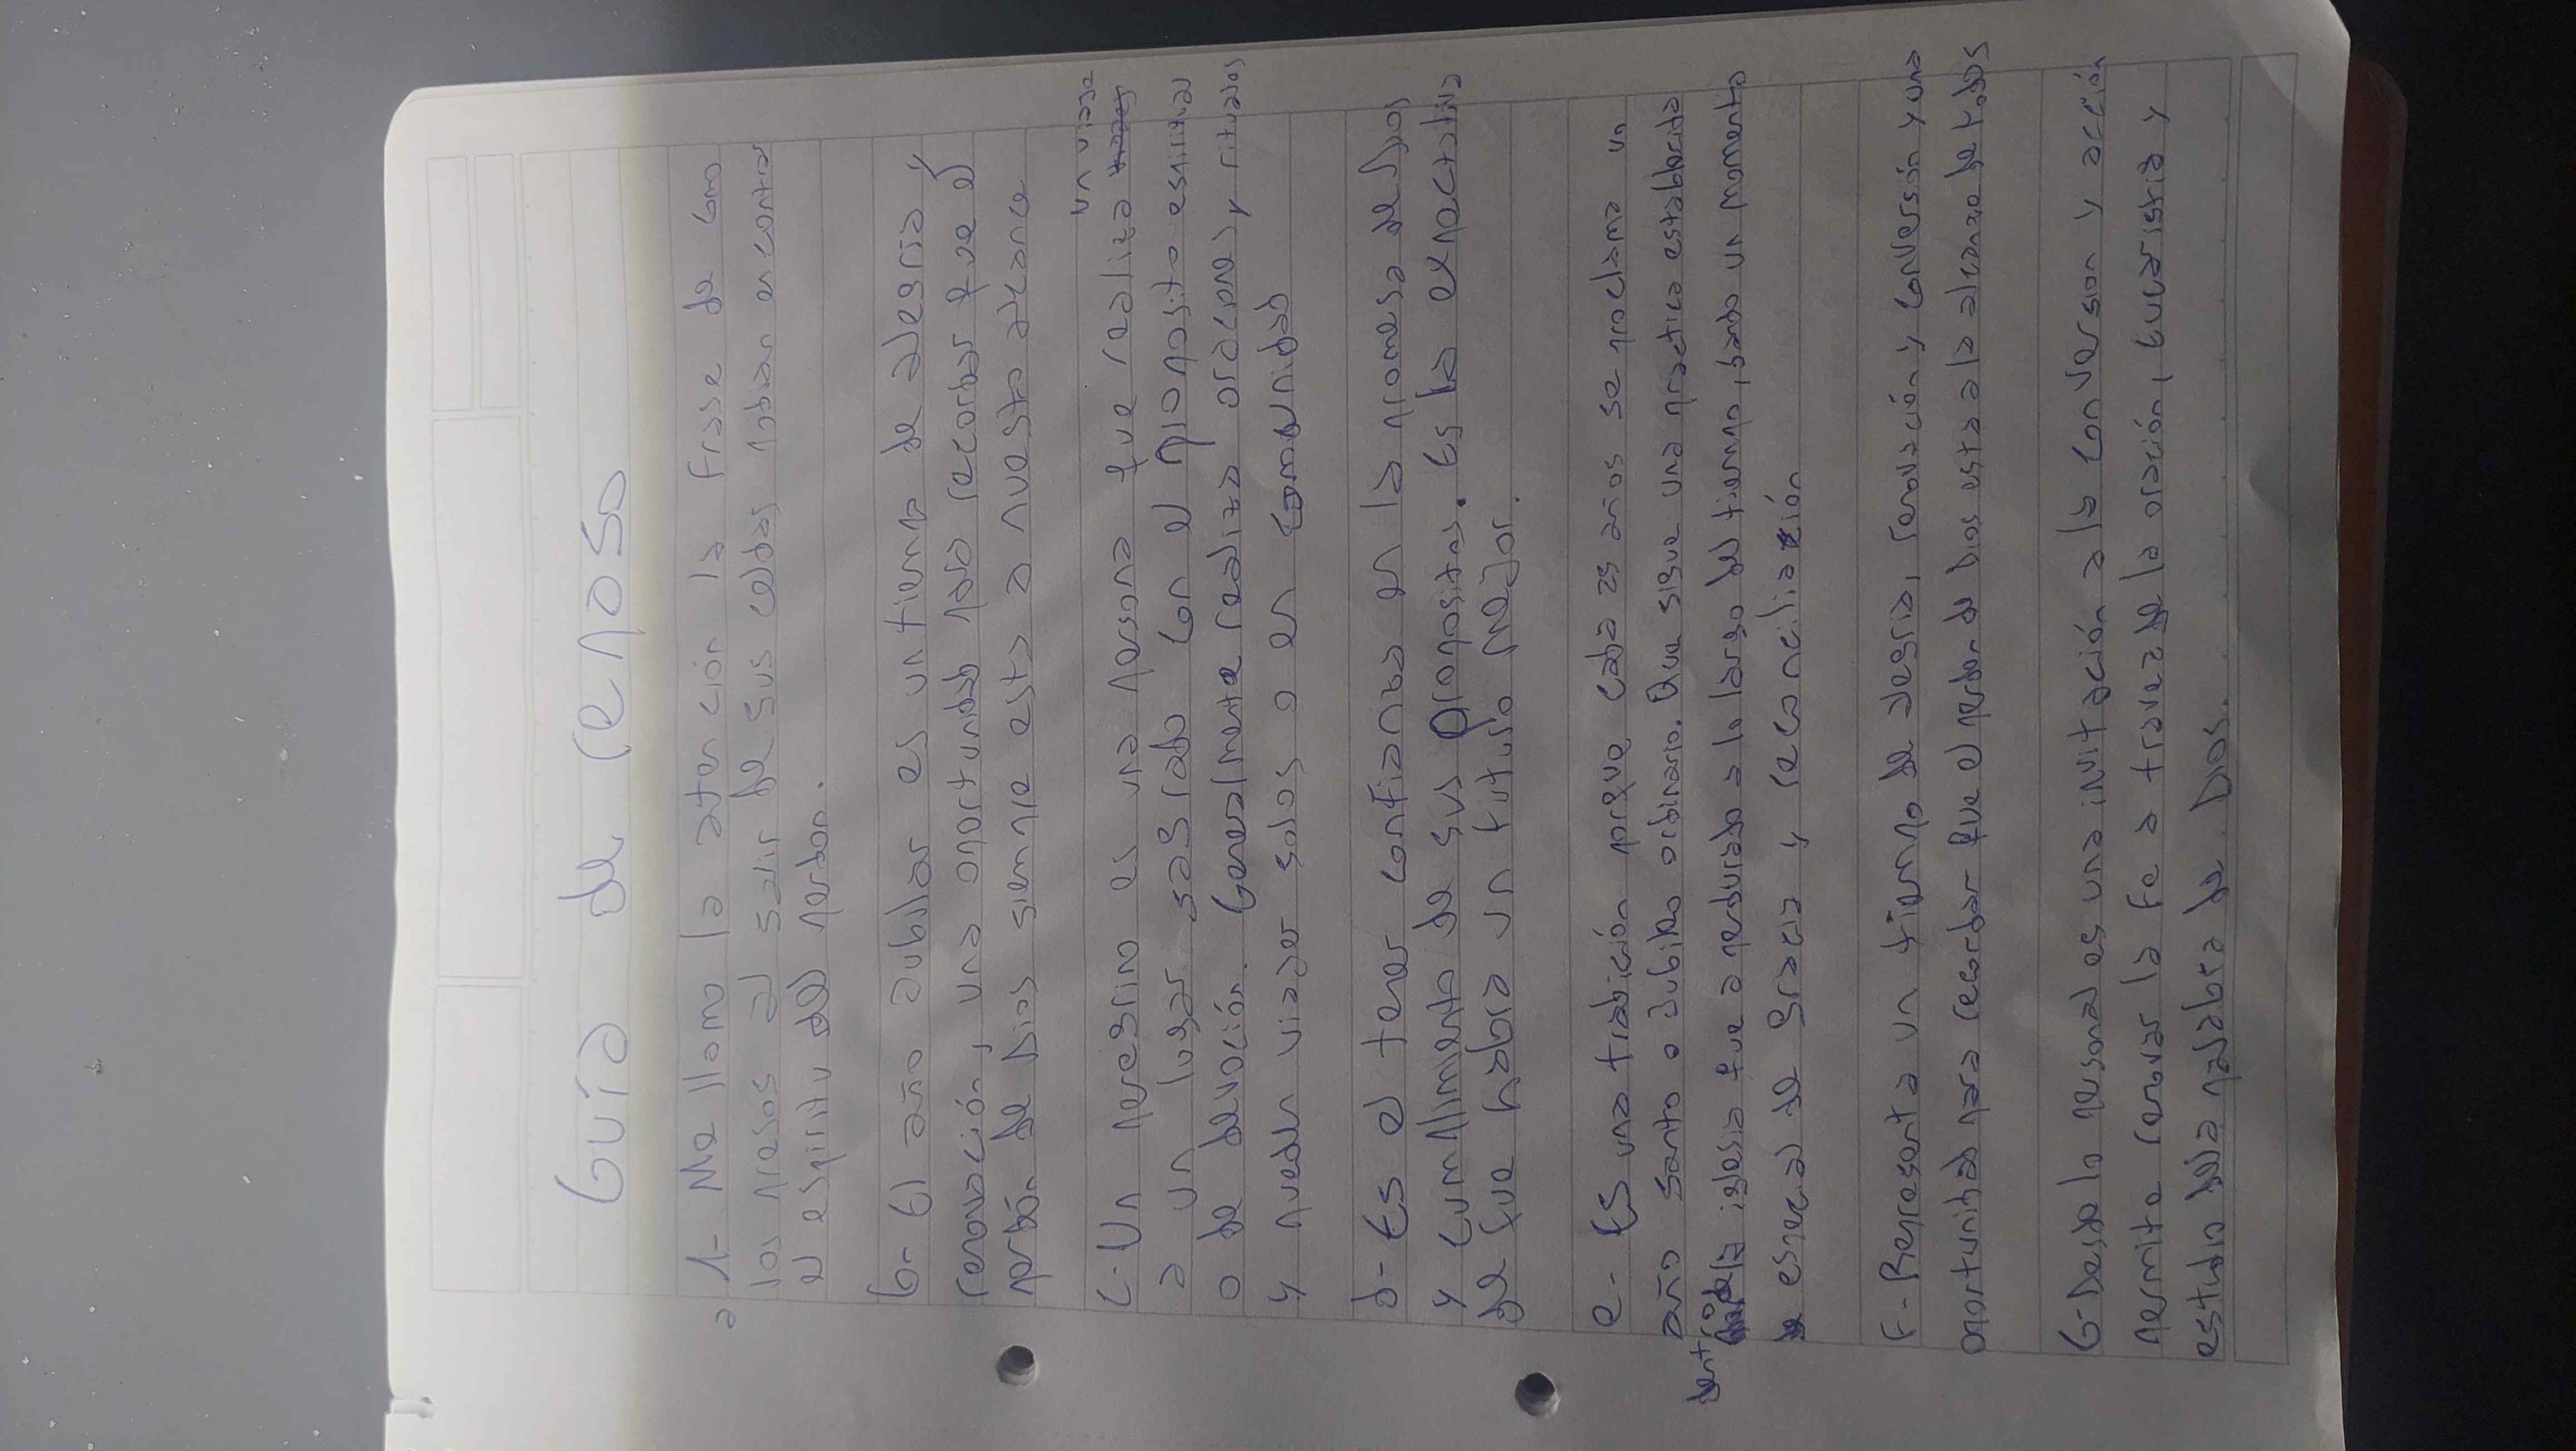 Guía de repaso
a 1- Me llamo la atención la frase de como
los presos al salir de sus celdas podian encontrar
el espiritu del perdon.
b- El año jubilar es un tiempo de alegria y
renovación, una oportunidad para recordar que el
perdón de Dios siempre esta a nuestro alcance
un viaje
c- Un peregrino es una persona que realiza
a un lugar sagrado con el proposito espiritual
o de devoción. Generalmente realiza oraciones y rituales
y pueden viajar solos o en comunidad
d- Es el tener confianza en la promesa de Dios
y cumplimiento de sus propositos. Es la expectativa
de que habra un futuro mejor.
e- Es una tradición porque cada 25 años se proclama un
año santo o jubileo ordinario. Que sigue una practica establecida
dentro de la iglesia que a perdurado a lo largo del tiempo, dando un momento
de especial de gracia y reconciliación
F- Representa un tiempo de alegria, renovación y conversión y una
oportunidad para recordar que el perdon de Dios esta a la alcance de todos
G- Desde lo personal es una invitación a la conversion y acción
permite renovar la fe a travez de la oración, eucaristia y
estudio de la palabra de Dios.